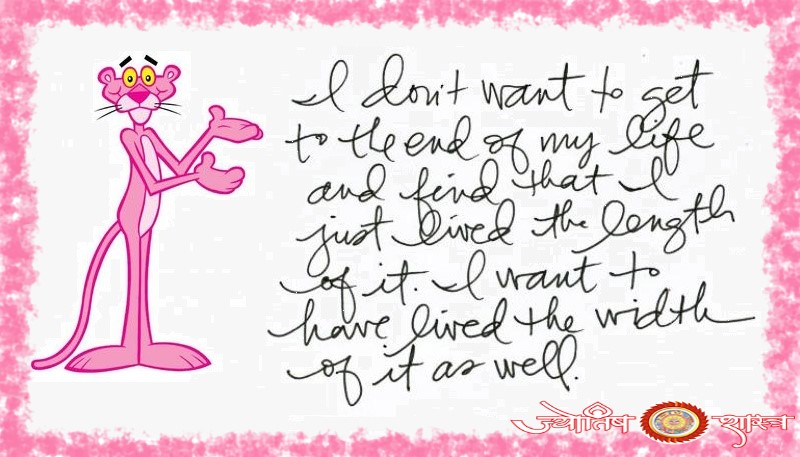 I don't want to get
to the end of my life
and find that I
just lived the length
of it. I want to
have lived the width
of it as well.
ज्योतिष शास्त्र